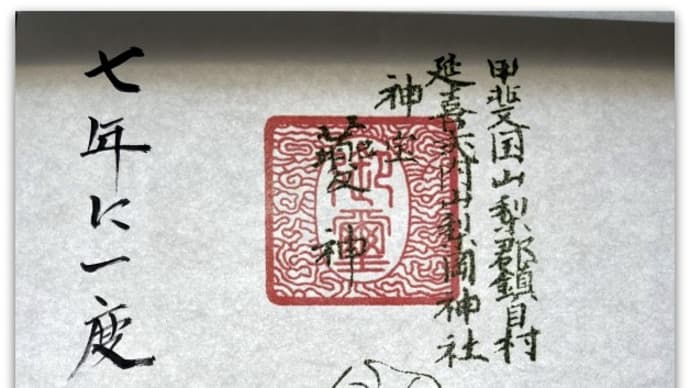 甲斐国山梨郡鎮目村
延喜式内山梨岡神社
神宝
夔神
七年に一度